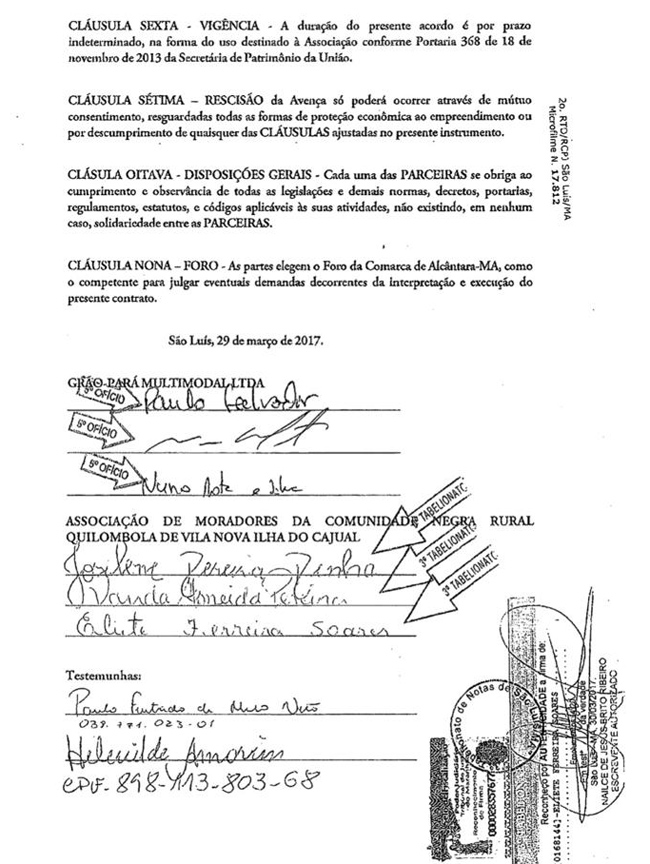 CLÁUSULA SEXTA - VIGÊNCIA - A duração do presente acordo é por prazo
indeterminado, na forma do uso destinado à Associação conforme Portaria 368 de 18 de
novembro de 2013 da Secretária de Patrimônio da União.
CLÁUSULA SÉTIMA – RESCISÃO da Avença só poderá ocorrer através de mútuo
consentimento, resguardadas todas as formas de proteção econômica ao empreendimento ou
por descumprimento de quaisquer das CLÁUSULAS ajustadas no presente instrumento.
2o. RTD/RCPJ São Luís/MA
Microfilme N. 17.812
CLÁSULA OITAVA - DISPOSIÇÕES GERAIS - Cada uma das PARCEIRAS se obriga ao
cumprimento e observância de todas as legislações e demais normas, decretos, portarias,
regulamentos, estatutos, e códigos aplicáveis às suas atividades, não existindo, em nenhum
caso, solidariedade entre as PARCEIRAS.
CLÁUSULA NONA – FORO - As partes elegem o Foro da Comarca de Alcântara-MA, como
o competente para julgar eventuais demandas decorrentes da interpretação e execução do
presente contrato.
São Luís, 29 de março de 2017.
GRÃO-PARÁ MULTIMODAL LTDA
5º OFÍCIO
Paulo Salvador
5º OFÍCIO
5º OFÍCIO
Nuno Mota e Silva
3º TABELIONATO
3º TABELIONATO
3º TABELIONATO
ASSOCIAÇÃO DE MORADORES DA COMUNIDADE NEGRA RURAL
QUILOMBOLA DE VILA NOVA ILHA DO CAJUAL
Josilene Pereira Dinha
Almeida
Eliete Ferreira Soares
Testemunhas:
Paulo Furtado de
Helenilde Amorim
CPF- 898-113-803-68
Tabelionato de Notas de São
Poder Judiciário
Reconhecimento
de Firma
Reconheço por AUTENTICIDADE a firma de:
0168144]-ELIETE FERREIRA SOARES
da verdade
São Luís-MA, 30/03/2017
NAILCE DE JESUS BRITO RIBEIRO
ESCREVENTE AUTORIZADO